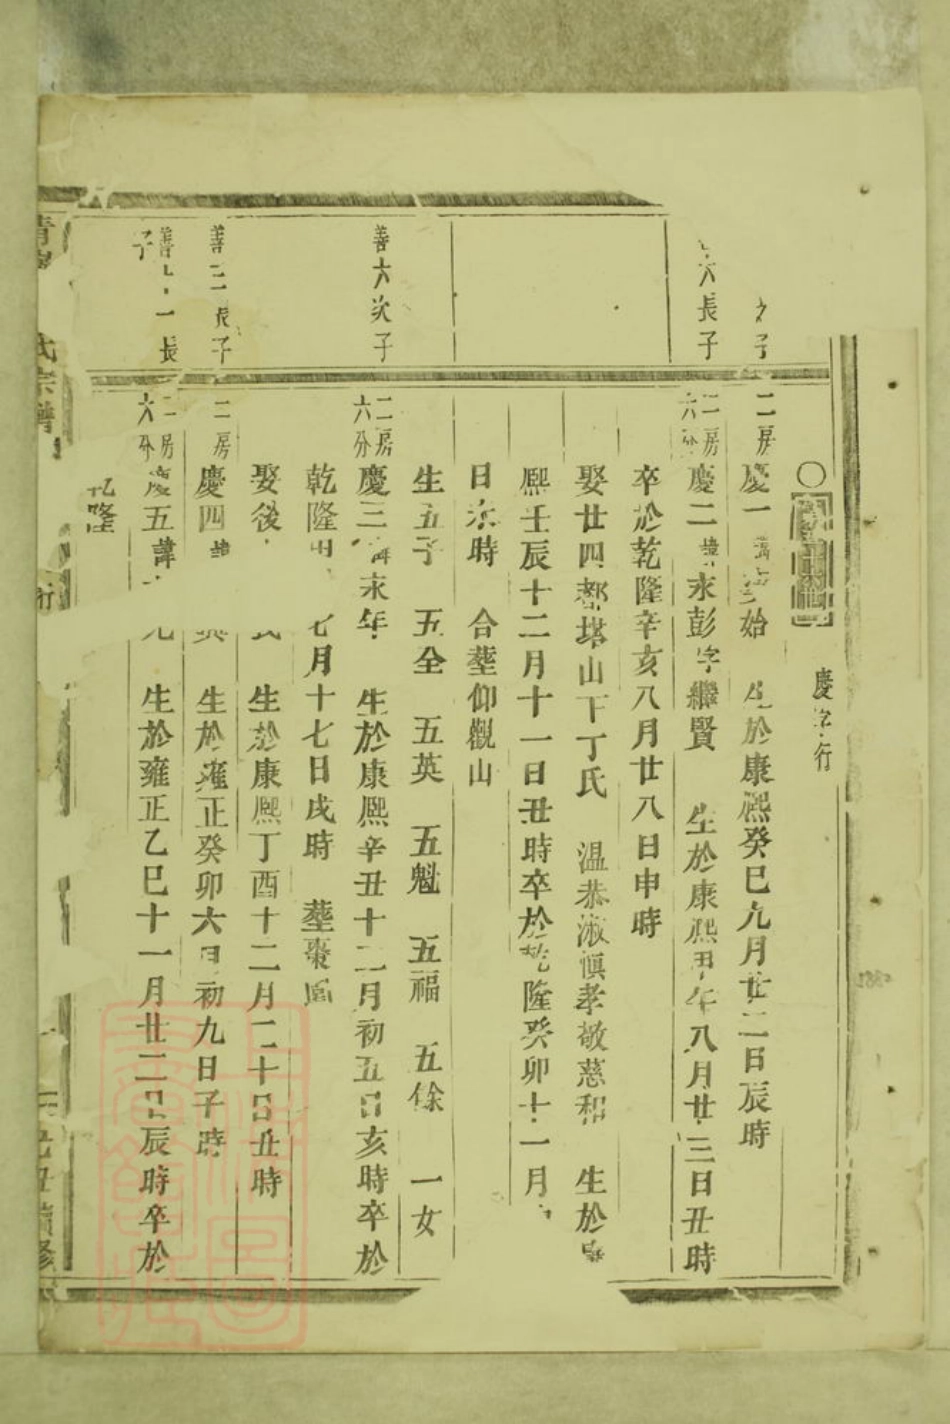 慶字行
次子
二房
慶一諱 始 生於康熙癸巳九月廿二日辰時
六長子
二房六分
慶二諱永彭字繼賢 生於康熙甲午八月廿三日丑時
卒於乾隆辛亥八月廿八日申時
娶廿四都塔山下丁氏 温恭淑慎孝敬慈和 生於康
熙壬辰十二月十一日丑時卒於乾隆癸卯十一月
日未時 合塟仰觀山
生五子 五全 五英 五魁 五福 五餘 一女
善六次子
二房六分
慶三諱永年 生於康熙辛丑十二月初五日亥時卒於
乾隆甲 七月十七日戌時 塟棗園
娶後 氏 生於康熙丁酉十二月二十日丑時
善三長子
二房
慶四諱 生於雍正癸卯六月初九日子時
善 一長子
二房六分
慶五諱 生於雍正乙巳十一月廿二日辰時卒於
乾隆
氏宗譜
行
丑續修